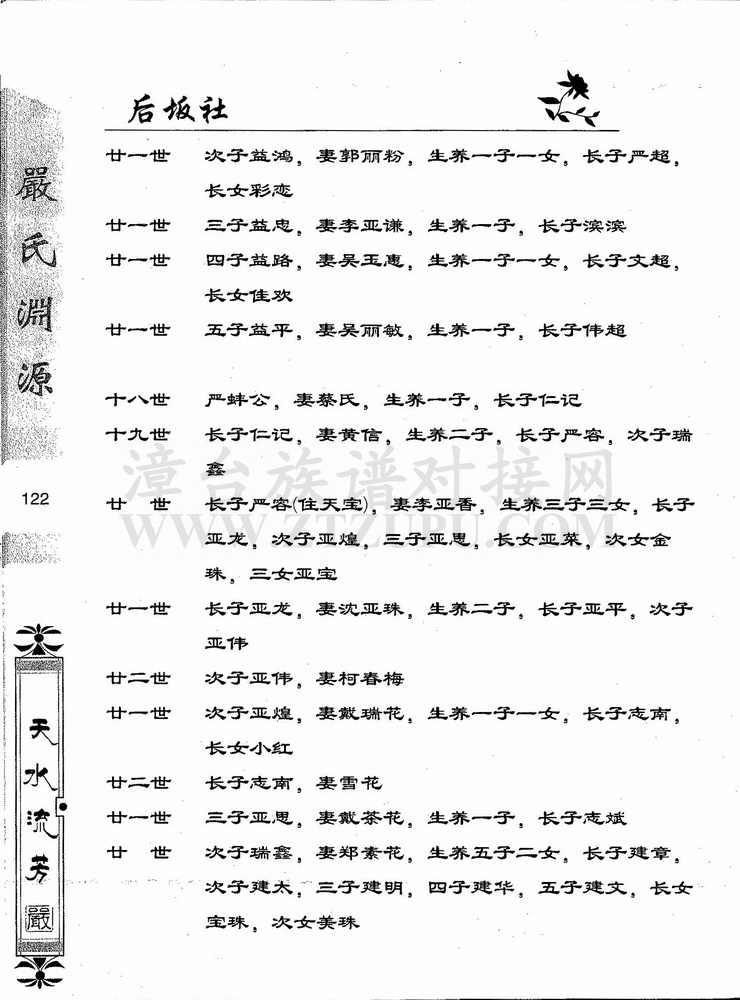 后坂社
廿一世 次子益鸿，妻郭丽粉，生养一子一女，长子严超，
长女彩恋
廿一世 三子益忠，妻李亚谦，生养一子，长子滨滨
廿一世 四子益路，妻吴玉惠，生养一子一女，长子文超，
长女佳欢
廿一世 五子益平，妻吴丽敏，生养一子，长子伟超
十八世 严蚌公，妻蔡氏，生养一子，长子仁记
十九世 长子仁记，妻黄信，生养二子，长子严容，次子瑞
鑫
廿　世 长子严容(住天宝)，妻李亚香，生养三子三女，长子
亚龙，次子亚煌，三子亚思，长女亚菜，次女金
珠，三女亚宝
廿一世 长子亚龙，妻沈亚珠，生养二子，长子亚平，次子
亚伟
廿二世 次子亚伟，妻柯春梅
廿一世 次子亚煌，妻戴瑞花，生养一子一女，长子志南，
长女小红
廿二世 长子志南，妻雪花
廿一世 三子亚思，妻戴茶花，生养一子，长子志斌
廿　世 次子瑞鑫，妻郑素花，生养五子二女，长子建章，
次子建太，三子建明，四子建华，五子建文，长女
宝珠，次女美珠
嚴氏淵源
122
天水流芳
嚴
漳台族谱对接网
WWW.ZTZUPU.COM